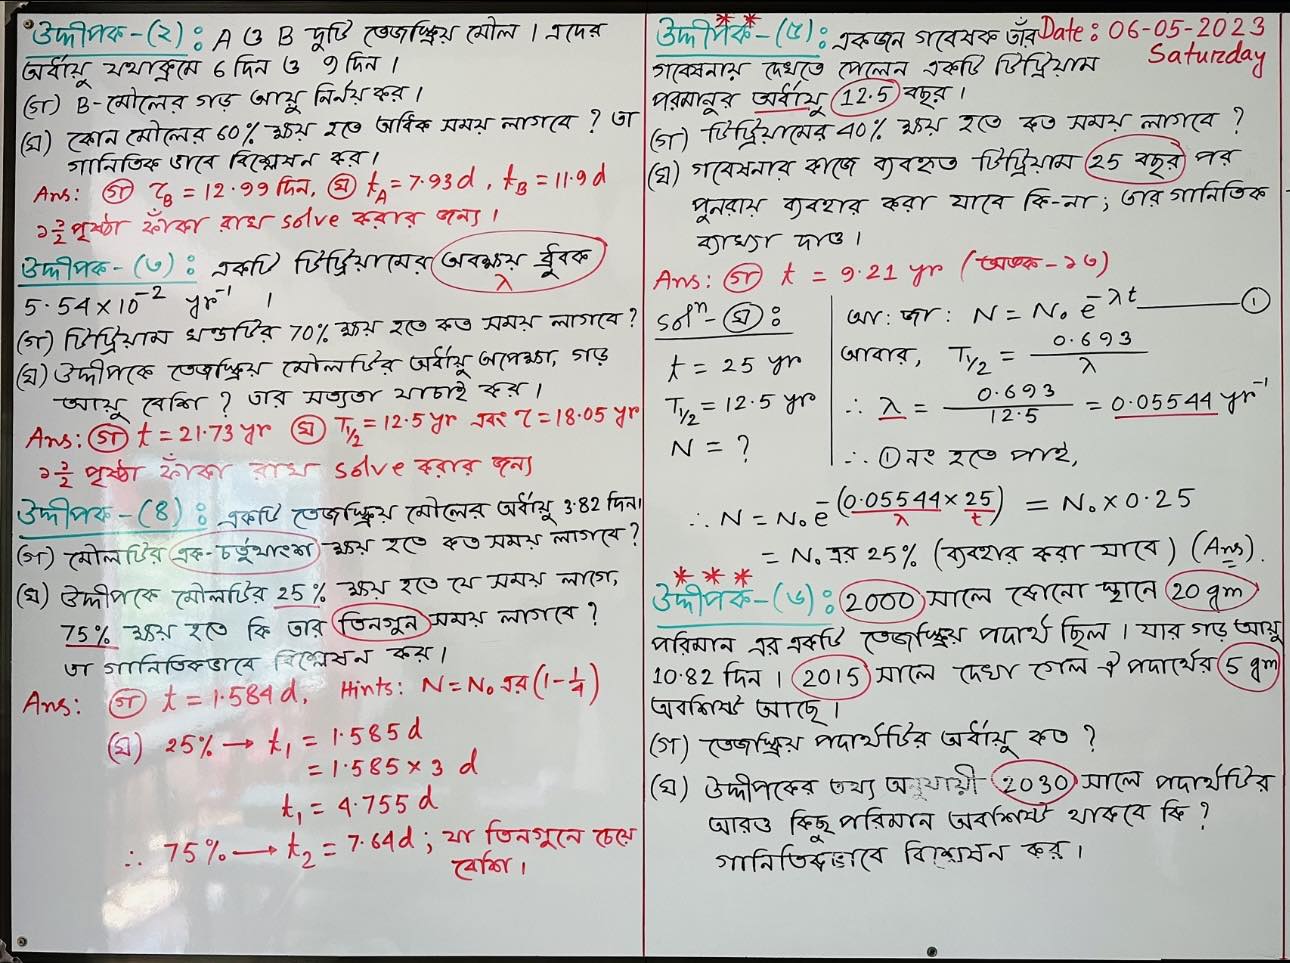 উদ্দীপক-(২): A ও B দুটি তেজস্ক্রিয় মৌল । এদের
অর্ধায়ু যথাক্রমে 6 দিন ও 9 দিন ।
(গ) B-মৌলের গড় আয়ু নির্নয় কর ।
(ঘ) কোন মৌলের 60% ক্ষয় হতে অধিক সময় লাগবে ? তা
গানিতিক ভাবে বিশ্লেষন কর ।
Ans: (গ) τB = 12.99 দিন, (ঘ) tA = 7.93 d , tB = 11.9 d
১ ১/২ পৃষ্ঠা ফাঁকা রাখ solve করার জন্য ।
উদ্দীপক-(৩): একটি টিট্রিয়ামের অবক্ষয় ধ্রুবক
λ
5.54×10⁻² yr⁻¹ ।
(গ) টিট্রিয়াম খন্ডটির 70% ক্ষয় হতে কত সময় লাগবে ?
(ঘ) উদ্দীপকে তেজস্ক্রিয় মৌলটির অর্ধায়ু অপেক্ষা, গড়
আয়ু বেশি ? তার সত্যতা যাচাই কর ।
Ans: (গ) t = 21.73 yr (ঘ) T1/2 = 12.5 yr এবং τ = 18.05 yr
১ ১/২ পৃষ্ঠা ফাঁকা রাখ solve করার জন্য
উদ্দীপক-(৪): একটি তেজস্ক্রিয় মৌলের অর্ধায়ু 3.82 দিন।
(গ) মৌলটির এক-চতুর্থাংশ ক্ষয় হতে কত সময় লাগবে ?
(ঘ) উদ্দীপকে মৌলটির 25% ক্ষয় হতে যে সময় লাগে,
75% ক্ষয় হতে কি তার তিনগুন সময় লাগবে ?
তা গানিতিকভাবে বিশ্লেষন কর ।
Ans: (গ) t = 1.584 d, Hints: N = N₀ এর (1-1/4)
(ঘ) 25% → t₁ = 1.585 d
= 1.585 × 3 d
t₁ = 4.755 d
∴ 75% → t₂ = 7.64 d ; যা তিনগুনে চেয়ে
বেশি ।
Date: 06-05-2023
Saturday
* *
উদ্দীপক-(৫): একজন গবেষক তাঁর
গবেষনায় দেখতে পেলেন একটি টিট্রিয়াম
পরমানুর অর্ধায়ু 12.5 বছর ।
(গ) টিট্রিয়ামের 40% ক্ষয় হতে কত সময় লাগবে ?
(ঘ) গবেষনার কাজে ব্যবহৃত টিট্রিয়াম 25 বছর পর
পুনরায় ব্যবহার করা যাবে কি-না ; তার গানিতিক
ব্যাখ্যা দাও ।
Ans: (গ) t = 9.21 yr (অঙ্ক-১৩)
Solⁿ-(ঘ):
t = 25 yr
T1/2 = 12.5 yr
N = ?
আ: জা: N = N₀ e^-λt ①
আবার, T1/2 = 0.693/λ
∴ λ = 0.693/12.5 = 0.05544 yr⁻¹
∴ ① নং হতে পাই,
∴ N = N₀ e^-(0.05544 × 25) = N₀ × 0.25
λ t
= N₀ এর 25% (ব্যবহার করা যাবে) (Ans).
* * *
উদ্দীপক-(৬): 2000 সালে কোনো স্থানে 20 gm
পরিমান এর একটি তেজস্ক্রিয় পদার্থ ছিল । যার গড় আয়ু
10.82 দিন । 2015 সালে দেখা গেল ঐ পদার্থের 5 gm
অবশিষ্ট আছে ।
(গ) তেজস্ক্রিয় পদার্থটির অর্ধায়ু কত ?
(ঘ) উদ্দীপকের তথ্য অনুযায়ী 2030 সালে পদার্থটির
আরও কিছু পরিমান অবশিষ্ট থাকবে কি ?
গানিতিকভাবে বিশ্লেষন কর ।